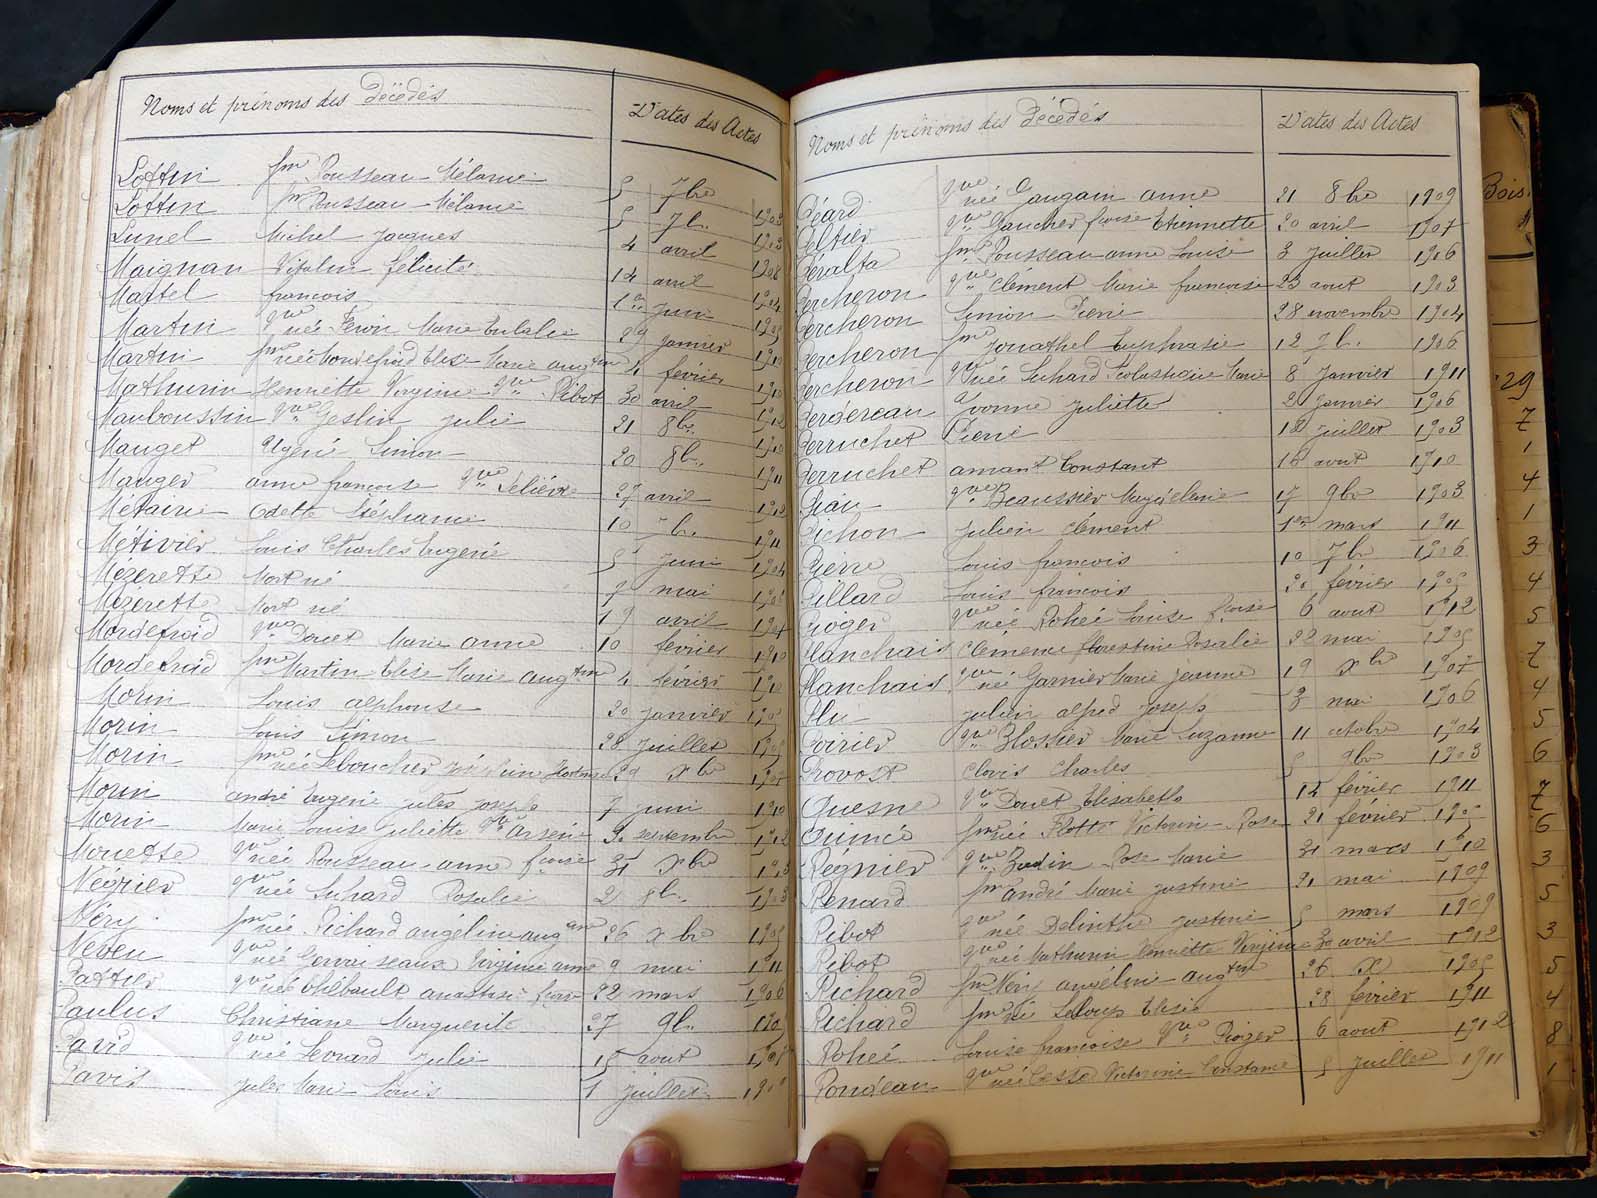 Noms et prénoms des Décédés
Dates des Actes
Lottin fme Rousseau Mélanie 5 7bre 1903
Lottin fme Rousseau Mélanie 5 7b. 1903
Lunel Michel Jacques 4 avril 1908
Maignan Vitaline félicité 14 avril 1904
Martel françois 1er Juin
Martin Vve née Marie Eulalie 29 Janvier 1910
Martin fme née Mordefroid Elise Marie augtine 4 février 1910
Mathurin Henriette Virginie Vve Ribot 30 avril 1912
Mauboussin Vve Geslin Julie 21 8b. 1910
Mauget Simon 20 8b. 1911
Mauger anne françoise Vve 27 avril 1912
Métairie Odette Stéphanie 10 7b. 1911
Métivier Louis Charles Eugenie 5 Juin 1904
Mezerette Mort né 9 mai
Mezerette Mort né 19 avril 1907
Mordefroid Vve Douet Marie anne 10 février 1910
Mordefroid fme Martin Elise Marie augtine 4 février 1910
Morin Louis alphonse 20 Janvier
Morin Louis Simon 28 Juillet
Morin fme née Leboucher 29 Xbre
Morin andré Eugenie Jules Joseph 7 Juin 1910
Morin Marie Louise Juliette septembre 1912
Mouette Vve née Rousseau anne fçoise 31 Xbre
Négrier Vve née Suhard Rosalie 2 8b. 1903
Néry fme née Richard angéline augtine 26 Xbre 1905
Neveu Vve née Gervaiseaux Virginie anne 9 mai 1911
Pattier Vve née Thébault anastasie 22 mars 1906
Paulus Christiane Marguerite 27 9b.
Pavid Vve née Leonard Julie 15 aout
Pavis Jules Marie Louis 1 Juillet
Noms et prénoms des Décédés
Dates des Actes
Péard Vve née Gaugain anne 21 8bre 1909
Peltier Vve Gaucher fçoise Etiennette 20 avril 1907
Péralta fme Rousseau anne Louise 3 Juillet 1906
Percheron Vve Clément Marie françoise 23 aout 1903
Percheron Simon Pierre 28 novembre 1904
Percheron fme Jonathel Euphrasie 12 7b. 1906
Percheron Vve née Suhard Scolastique Marie 8 Janvier 1911
Pergereau Yvonne Juliette 2 Janvier 1906
Perruchet Pierre 12 Juillet 1903
Perruchet amant Constant 15 aout 1910
Piau Vve Beaussier Magdelaine 17 9bre 1903
Pichon Julien Clément 1er mars 1911
Pierre Louis françois 10 7bre 1906
Pillard Louis françois février
Pioger Vve née Rohée Louise fçoise 6 aout 1912
Planchais Clémence florestine Rosalie 22 mai 1905
Planchais Vve née Garnier Marie Jeanne 19 Xbre 1907
Plu Julien alfred Joseph 3 mai 1906
Poirier Vve Blossier Marie Suzanne 11 octobre 1904
Provost Clovis Charles 5 9bre 1903
Quesne Vve Douet Elisabeth 12 février 1911
Quincé fme née Flotté Victorine Rose 21 février
Régnier Vve Bodin Rose Marie 31 mars 1910
Renard fme andré Marie Justine mai 1909
Ribot Vve née Delinthe Justine 5 mars 1909
Ribot Vve née Mathurin Henriette Virginie 30 avril 1912
Richard fme Néry angéline augtine 26 X 1905
Richard fme née Leloup Elisa 28 février 1911
Rohée Louise françoise Vve Pioger 6 aout 1912
Rondeau Vve née Cosse Victorine Constance 5 Juillet 1911
Bois
29
7
1
4
1
3
4
5
7
4
5
6
7
6
3
5
3
5
4
8
1